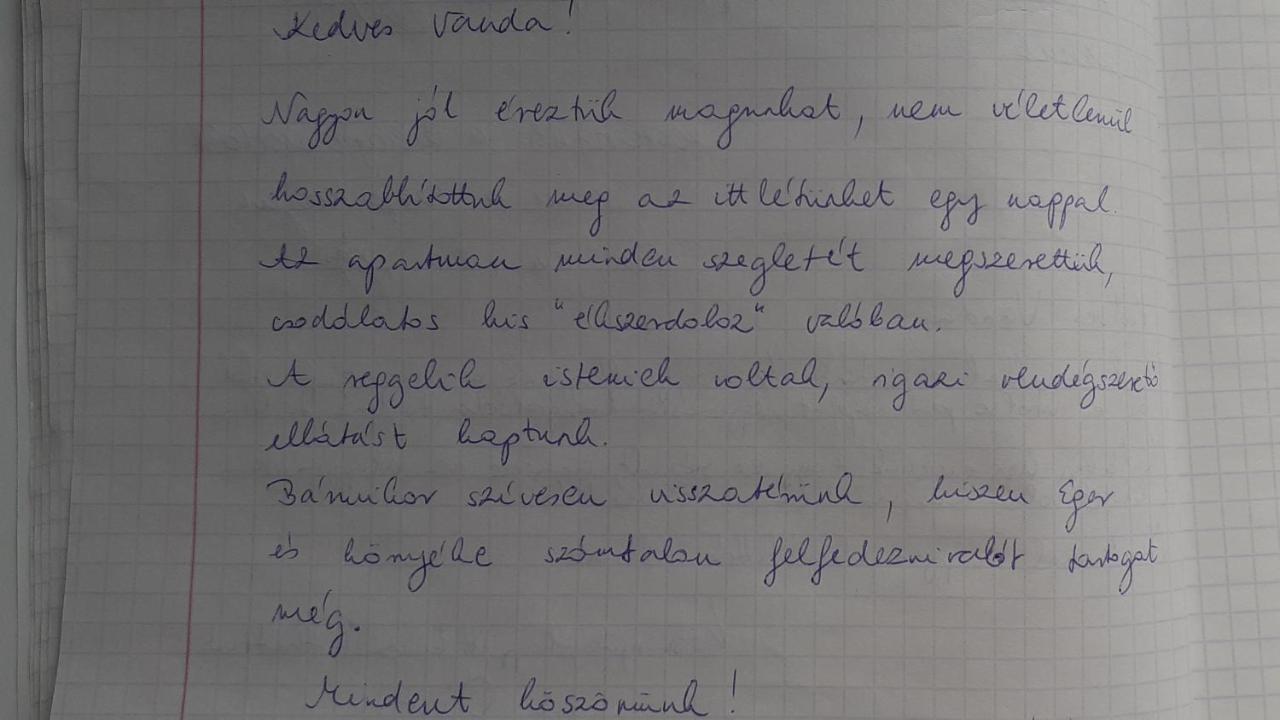 Kedves Vanda!
Nagyon jól éreztük magunkat, nem véletlenül
hosszabbítottuk meg az ittlétünket egy nappal.
Az apartman minden szegletét megszerettük,
csodálatos kis "ékszerdoboz" valóban.
A reggelik isteniek voltak, igazi vendégszerető
ellátást kaptunk.
Bármikor szívesen visszatérünk, hiszen Eger
és környéke számtalan felfedeznivalót tartogat
még.
Mindent köszönünk!